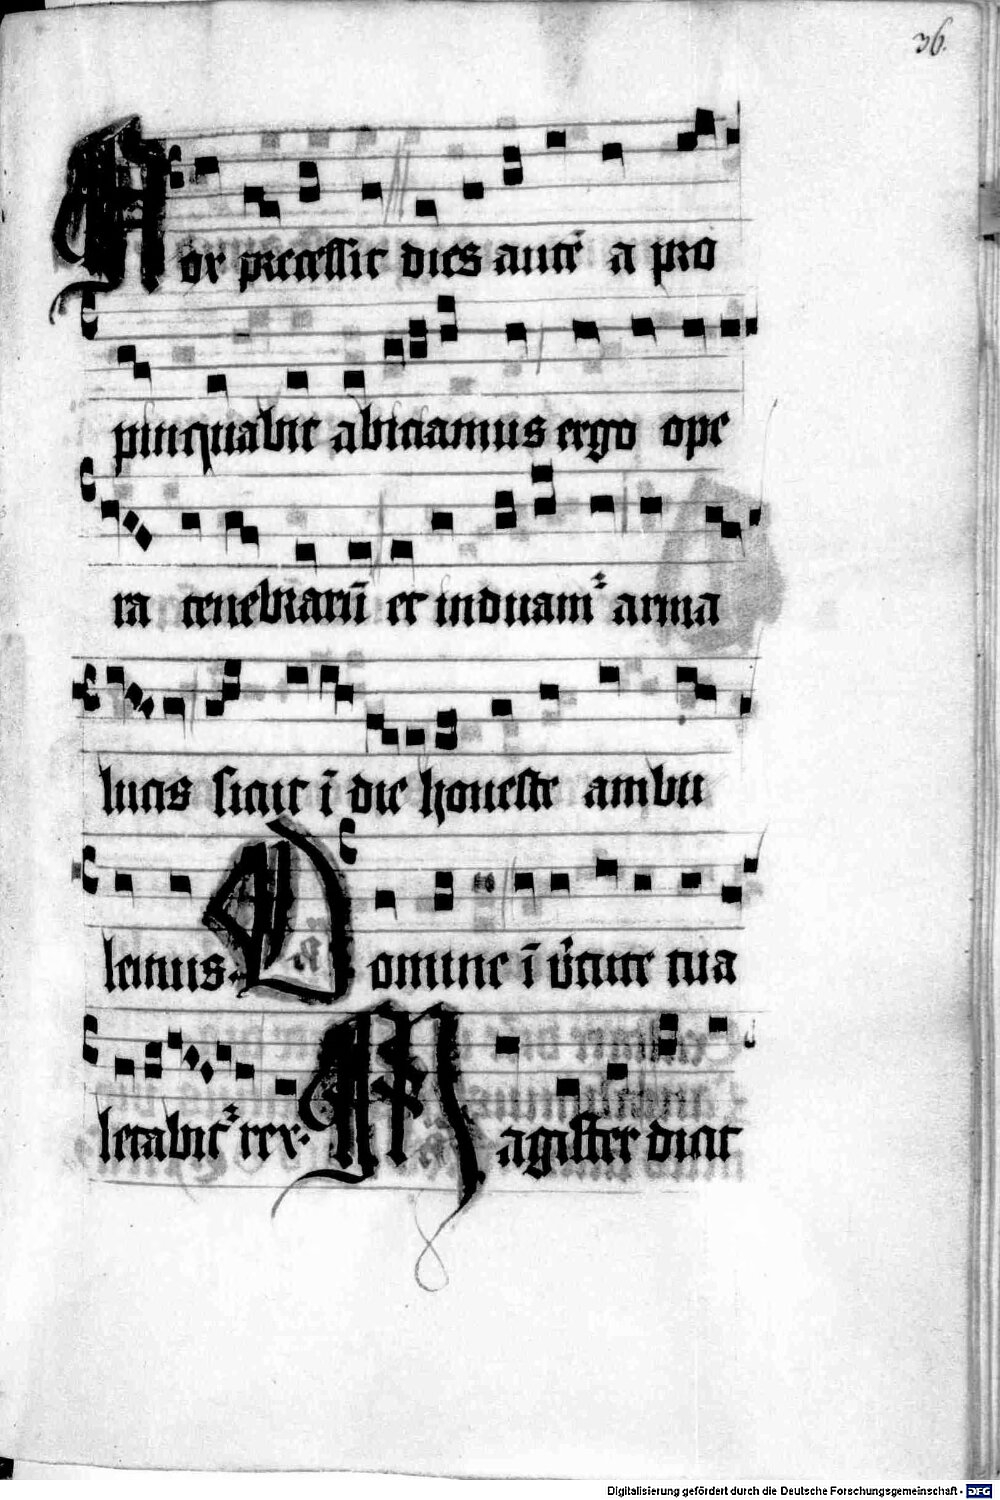 36.
Nox precessit dies autē a pro
pinquabit abiciamus ergo ope
ra tenebrarū et induam᷑ arma
lucis sicut ī die honeste ambu
lemus. Domine ī v̄tute tua
letabit᷑ rex. Magister dicit
Digitalisierung gefördert durch die Deutsche Forschungsgemeinschaft - DFG